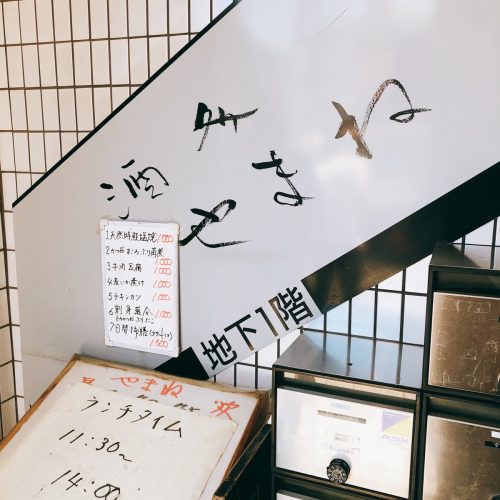 酒糸
やまね
1天然時鮭塩焼 1.000
2かつお まぐろ ぶり角煮 1.000
3牛肉豆腐 1.000
4真いか煮付 1.000
5チキンカツ 1.000
6刺身盛合 1.000
7日替御膳
1.500
地下1階
やまね
ランチタイム
11:30~
14:00